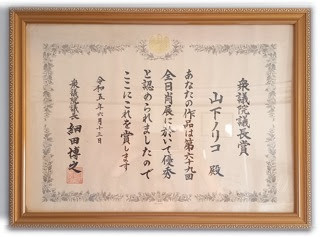 衆議院議長賞
山下ノリコ 殿
あなたの作品は第六十九回
全日肖展に於いて優秀
と認められましたので
ここにこれを賞します
令和五年六月十三日
衆議院議長 細田博之